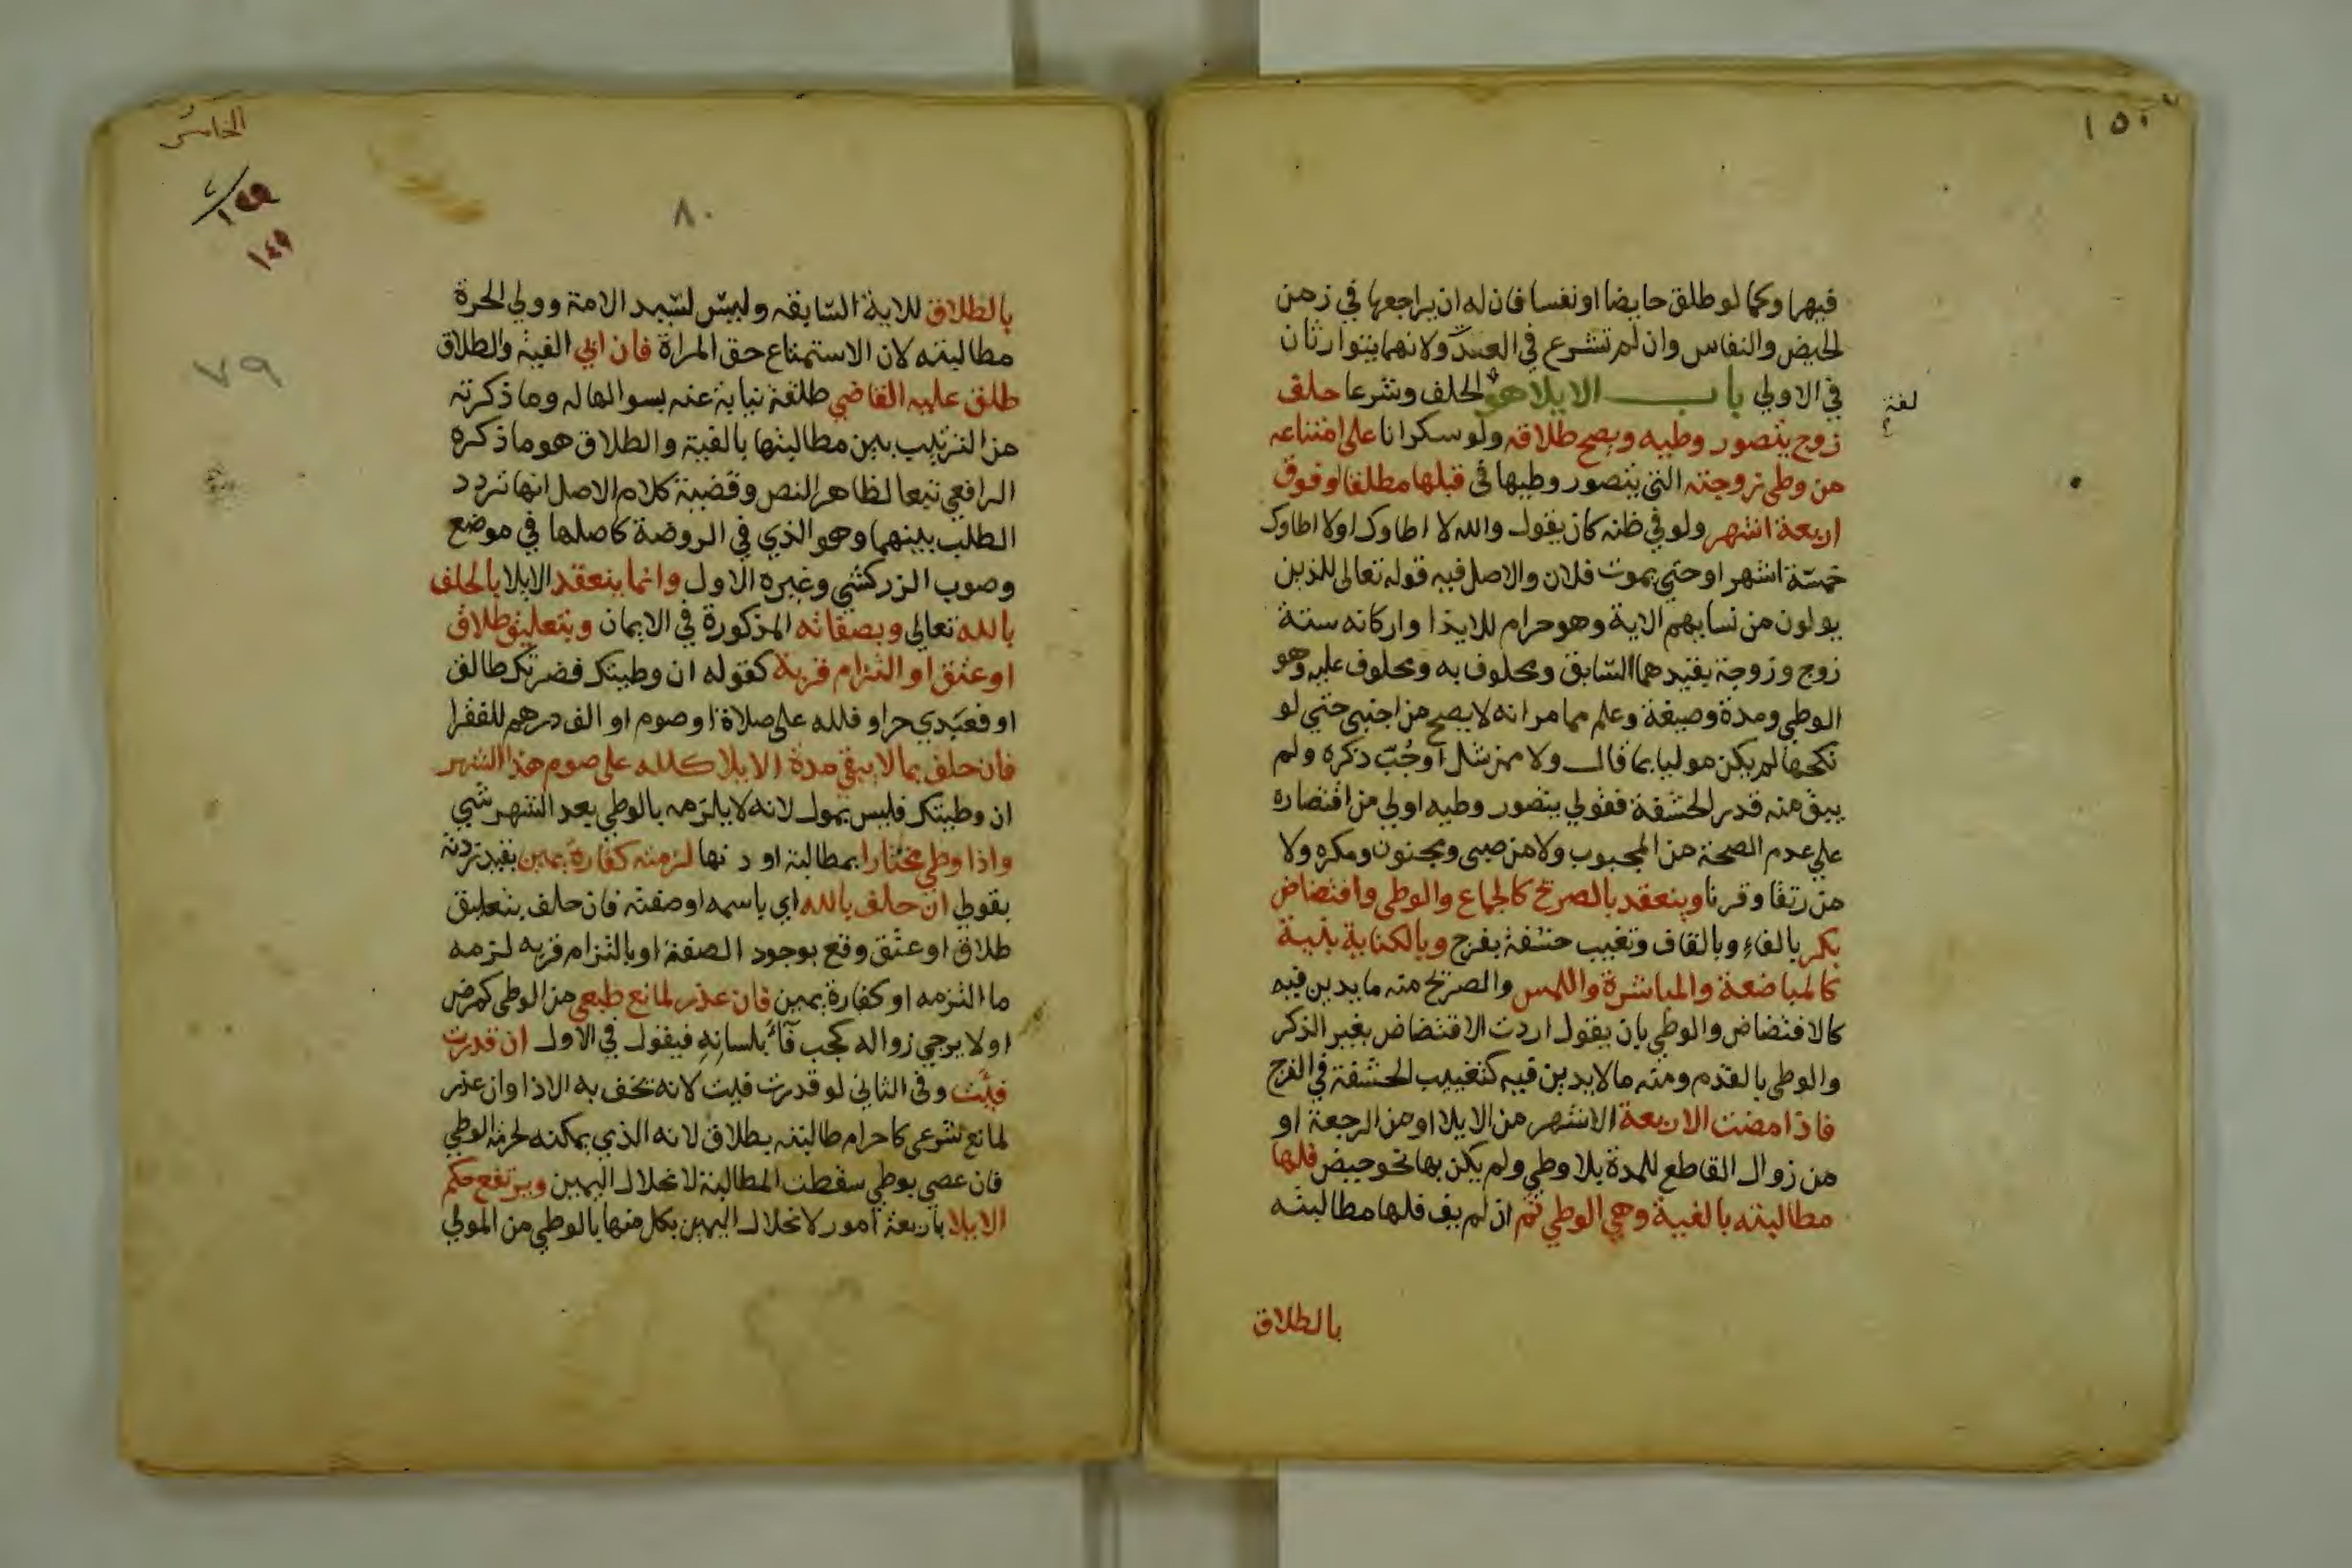 ١٥٠
فيها وكما لو طلق حايضا او نفسا فان له ان يراجعها في زمن
الحيض والنفاس وان لم تشرع في العدة ولانهما يتوارثان
في الاولي باب الايلا هو الحلف وشرعا حلف
لغة
زوج يتصور وطيه ويصح طلاقه ولو سكرانا على امتناعه
من وطي زوجته التي يتصور وطيها في قبلها مطلقا او فوق
اربعة اشهر ولو في ظنه كان يقول والله لا اطاوك او لا اطاوك
خمسة اشهر او حتي يموت فلان والاصل فيه قوله تعالى للذين
يولون من نسايهم الاية وهو حرام للايذا واركانه ستة
زوج وزوجة بقيدهما السابق ومحلوف به ومحلوف عليه وهو
الوطي ومدة وصيغة وعلم مما مر انه لا يصح من اجنبي حتي لو
نكحها لم يكن موليا بما قال ولا ممن شل او جُبّ ذكره ولم
يبق منه قدر الحشفة فقولي يتصور وطيه اولي من اقتصاره
علي عدم الصحة من المجبوب ولا من صبي ومجنون ومكره ولا
من رتقا وقرنا وينعقد بالصريح كالجماع والوطي وافتضاض
بكر بالفاء وبالقاف وتغييب حشفة بفرج وبالكناية بنية
كالمباضعة والمباشرة واللمس والصريح منه ما يدين فيه
كالافتضاض والوطي بان يقول اردت الافتضاض بغير الذكر
والوطي بالقدم ومنه ما لا يدين فيه كتغييب الحشفة في الفرج
فاذا مضت الاربعة الاشهر من الايلا او من الرجعة او
من زوال القاطع للمدة بلا وطي ولم يكن بها نحو حيض فلها
مطالبته بالفية وهي الوطي ثم ان لم يف فلها مطالبته
بالطلاق
الخامس
١٤٩
٨٠
٧٩
بالطلاق للاية السابقه وليس لسيد الامة وولي الحرة
مطالبته لان الاستمتاع حق المراة فان ابي الفية والطلاق
طلق عليه القاضي طلقة نيابة عنه بسوالها له وما ذكرته
من الترتيب بين مطالبتها بالفية والطلاق هو ما ذكره
الرافعي تبعا لظاهر النص وقضية كلام الاصل انها تردد
الطلب بينهما وهو الذي في الروضة كاصلها في موضع
وصوب الزركشي وغيره الاول وانما ينعقد الايلا بالحلف
بالله تعالى وبصفاته المذكورة في الايمان وبتعليق طلاق
او عتق او التزام قربة كقوله ان وطيتك فضرتك طالق
او فعبدي حر او فلله على صلاة او صوم او الف درهم للفقرا
فان حلف بما لا يبقي مدة الايلا كلله على صوم هذا الشهر
ان وطيتك فليس بمول لانه لا يلزمه بالوطي بعد الشهر شي
واذا وطي مختارا بمطالبة او دونها لزمته كفارة يمين بقيد زدته
بقولي ان حلف بالله اي باسمه او صفته فان حلف بتعليق
طلاق او عتق وقع بوجود الصفة او بالتزام قربه لزمه
ما التزمه او كفارة يمين فان عذر لمانع طبعي من الوطي كمرض
اولا يرجي زواله كجب فاء بلسانه فيقول في الاول ان قدرت
فيئت وفي الثاني لو قدرت فيت لانه يخف به الاذا وان عذر
لمانع شرعي كاحرام طالبته بطلاق لانه الذي يمكنه لحرمة الوطي
فان عصي بوطي سقطت المطالبة لانحلال اليمين ويرتفع حكم
الايلا باربعة امور لانحلال اليمين بكل منها بالوطي من المولي